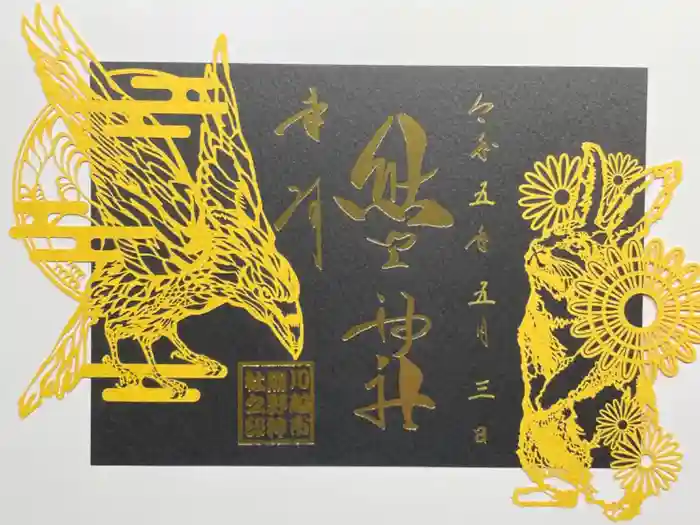 令和五年五月三日
熊野神社
奉拝
川越市
熊野神
社之印